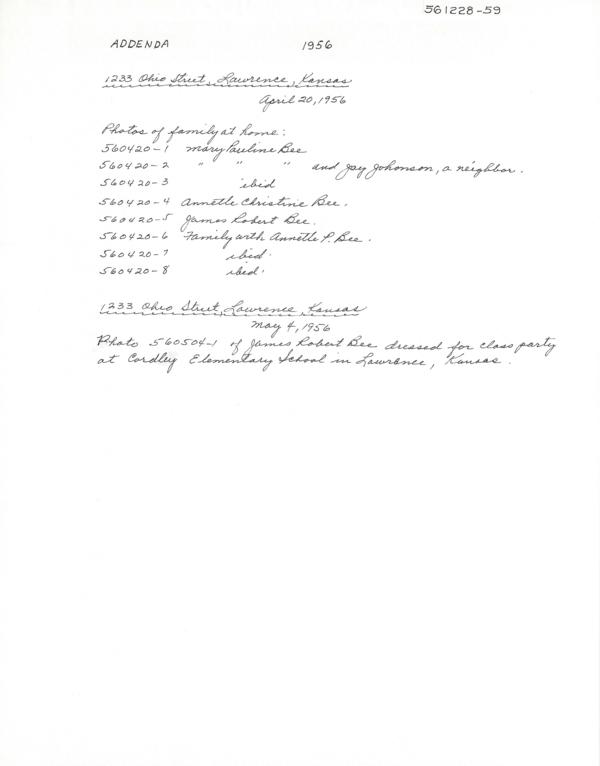 561228-59
ADDENDA 1956
1233 Ohio Street, Lawrence, Kansas
April 20, 1956
Photos of family at home:
560420-1 Mary Pauline Bee
560420-2 " " " and Jay Johonson, a neighbor.
560420-3 ibid
560420-4 Annette Christine Bee.
560420-5 James Robert Bee.
560420-6 Family with Annette P. Bee.
560420-7 ibid.
560420-8 ibid.
1233 Ohio Street, Lawrence, Kansas
May 4, 1956
Photo 560504-1 of James Robert Bee dressed for class party
at Cordley Elementary School in Lawrence, Kansas.